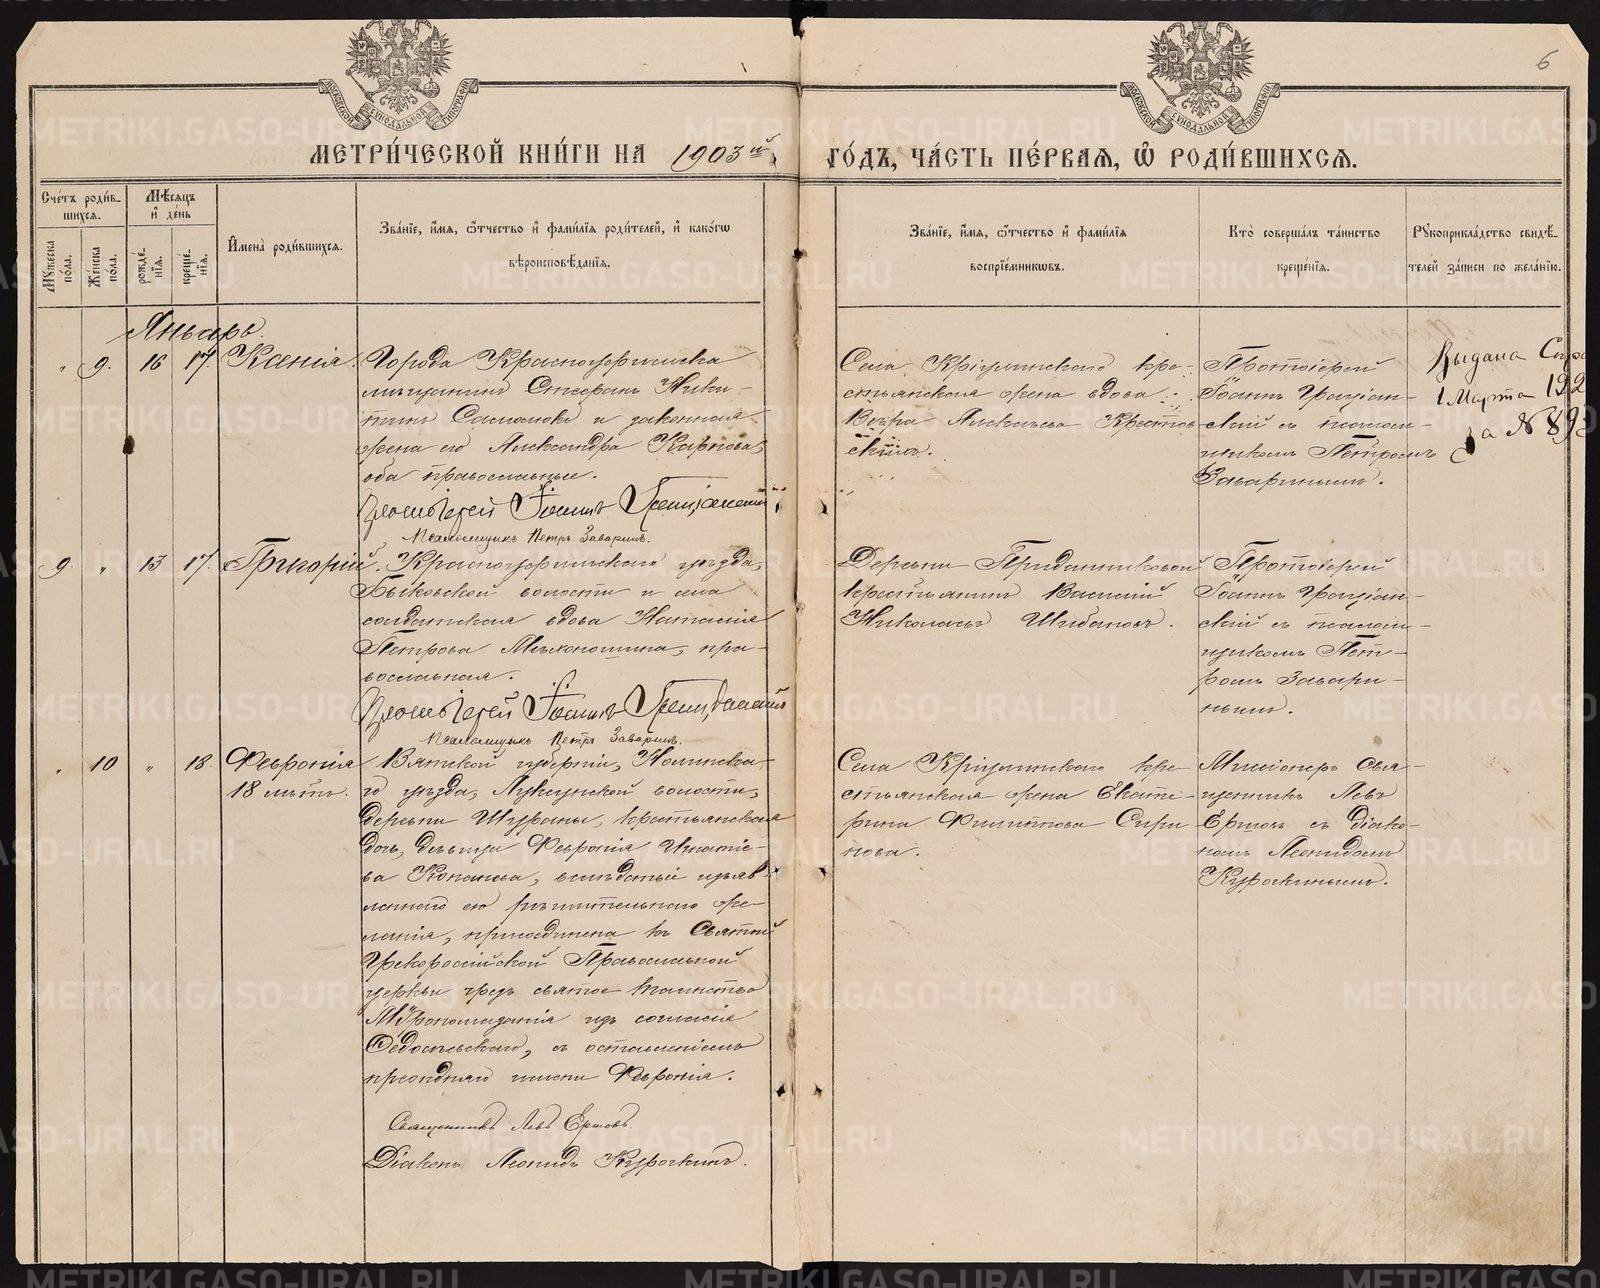 6
МЕТРИ́ЧЕСКОЙ КНИ́ГИ НА 1903 й
ГО́ДЪ, ЧА́СТЬ ПЕ́РВАЯ, Ѽ РОДИ́ВШИХСЯ.
Сче́тъ роди́в-
шихся.
Мѣ́сяцъ
и҆ де́нь
Мꙋ́жеска
по́ла.
Же́нска
по́ла.
рожде́-
нїя.
креще́-
нїя.
И҆мена̀ роди́вшихся.
Зва́нїе, и҆́мя, ѻ҆́тчество и҆ фами́лїя роди́телей, и҆ како́гѡ
вѣроисповѣ́данїя.
Зва́нїе, и҆́мя, ѻ҆́тчество и҆ фами́лїя
воспрїе́мникѡвъ.
Кто̀ соверша́лъ та́инство
креще́нїя.
Рꙋкоприкла́дство свидѣ́-
телей за́писи по жела́нїю.
Январь.
" 9. 16 17. Ксенія.
Города Красноуфимска
мѣщанинъ Стефанъ Ники-
тинъ и законная
жена его Александра Карпова,
оба православные.
Протоіерей Іоаннъ Граціанскій
Псаломщикъ Петръ Заваринъ.
Села Кріулинскаго кре-
стьянская жена вдова
Вѣра Алексѣева Крестов-
скихъ.
Протоіерей
Іоаннъ Граціан-
скій съ псалом-
щикомъ Петромъ
Заваринымъ.
Выдана Спра
1 Марта 192
за № 893
9. " 13 17. Григорій.
Красноуфимскаго уѣзда,
Быковской волости и села
солдатская вдова Наталія
Петрова Мѣхоношина, пра-
вославная.
Протоіерей Іоаннъ Граціанскій
Псаломщикъ Петръ Заваринъ.
Деревни Приданниковой
крестьянинъ Василій
Николаевъ Шибановъ.
Протоіерей
Іоаннъ Граціан-
скій съ псалом-
щикомъ Пет-
ромъ Завари-
нымъ.
" 10 " 18. Февронія
18 лѣтъ.
Вятской губерніи, Нолинска-
го уѣзда, волости,
деревни Шураны, крестьянская
дочь, дѣвица Февронія Игнатіе-
ва Копанева, вслѣдствіе изъяв-
леннаго ею рѣшительнаго же-
ланія, присоединена къ Святой
Грекороссійской Православной
церкви чрезъ святое таинство
Мѵропомазанія изъ согласія
Ѳедосѣевскаго, съ оставленіемъ
прежняго имени Февронія.
Священникъ Левъ Ершовъ.
Діаконъ Леонидъ Курочкинъ.
Села Кріулинскаго кре-
стьянская жена Екате-
рина Филиппова Сири-
нова.
Миссіонеръ Свя-
щенникъ Левъ
Ершовъ съ діако-
номъ Леонидомъ
Курочкинымъ.
METRIKI.GASO-URAL.RU